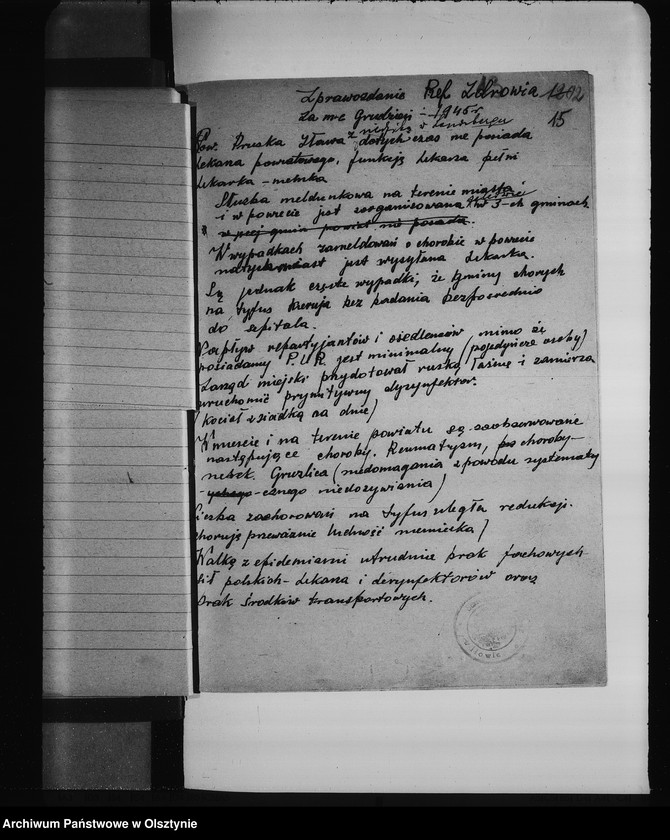 Sprawozdanie Ref. Zdrowia 1302
za m-c Grudzień 1945 r 15
Pow. Pruska Iława dotychczas nie posiada
lekarza powiatowego, funkcję lekarza pełni
lekarka - niemka
Służba meldunkowa na terenie miasta
i w powiecie jest zorganizowana w 3-ch gminach
W wypadkach zameldowań o chorobie w powiecie
natychmiast jest wysyłana lekarka.
Są jednak częste wypadki, że gminy chorych
na tyfus kierują bez badania bezpośrednio
do szpitala.
Napływ repatryjantów i osiedleńców mimo że
posiadamy P.U.R. jest minimalny (pojedyńcze osoby)
Zarząd miejski przygotował ruską łaźnię i zamierza
uruchomić prymitywny dezynfektor.
(kocioł z siatką na dnie)
W mieście i na terenie powiatu są zaobserwowane
następujące choroby. Reumatyzm, choroby
Gruźlica (niedomagania z powodu systematy
cznego niedożywiania)
Liczba zachorowań na tyfus uległa redukcji.
chorują przeważnie ludność niemiecka)
Walkę z epidemiami utrudnia brak fachowych
sił polskich - lekarza i dezynfektorów oraz
brak środków transportowych.
Archiwum Państwowe w Olsztynie